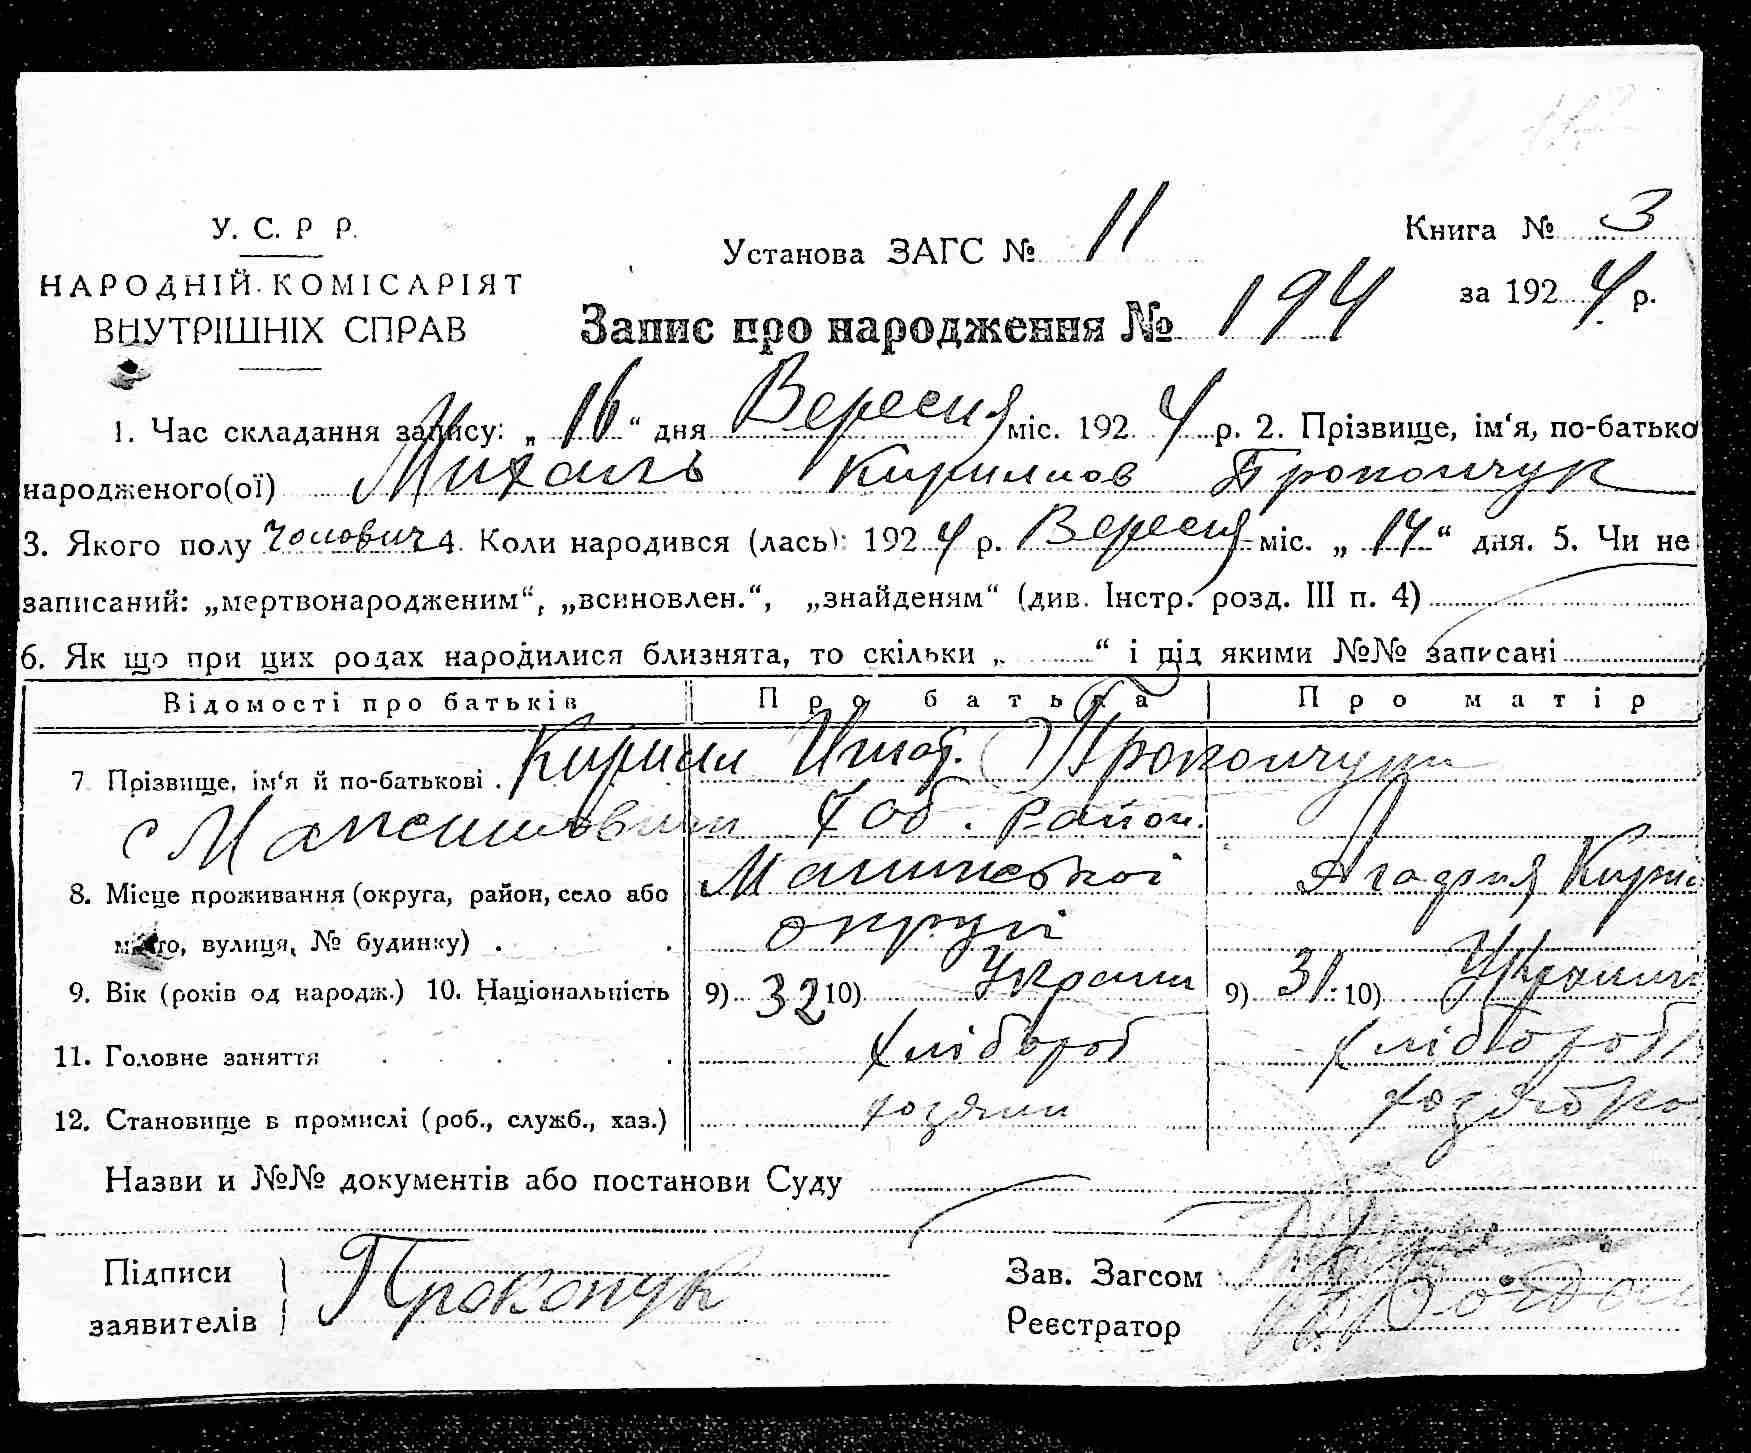 У. С. Р Р.
НАРОДНІЙ КОМІСАРІЯТ
ВНУТРІШНІХ СПРАВ
Установа ЗАГС № 11
Книга № 3
за 1924 р.
Запис про народження № 194
1. Час складання запису: „16“ дня Вересня міс. 1924 р. 2. Прізвище, ім‘я, по-батько
народженого(ої) Михаль Кирилов Прокопчук
3. Якого полу чоловіч 4. Коли народився (лась): 1924 р. Вересня міс. „14“ дня. 5. Чи не
записаний: „мертвонародженим“, „всиновлен.“, „знайденям“ (див. Інстр. розд. III п. 4)
6. Як що при цих родах народилися близнята, то скільки „ “ і під якими №№ записані
Відомості про батьків Про батька Про матір
7 Прізвище, ім‘я й по-батькові . Кирил Прокопчуки
район.
8. Місце проживання (округа, район, село або
місто, вулиця, № будинку) . . округи
9. Вік (років од народж.) 10. Національність 9) 32 10) Украин 9) 31. 10) Украин
11. Головне заняття . . . . . . хлібороб хлібороб
12. Становище в промислі (роб., служб., хаз.) хозяин хозяйка
Назви и №№ документів або постанови Суду
Підписи
заявителів
Прокопчук
Зав. Загсом
Реєстратор